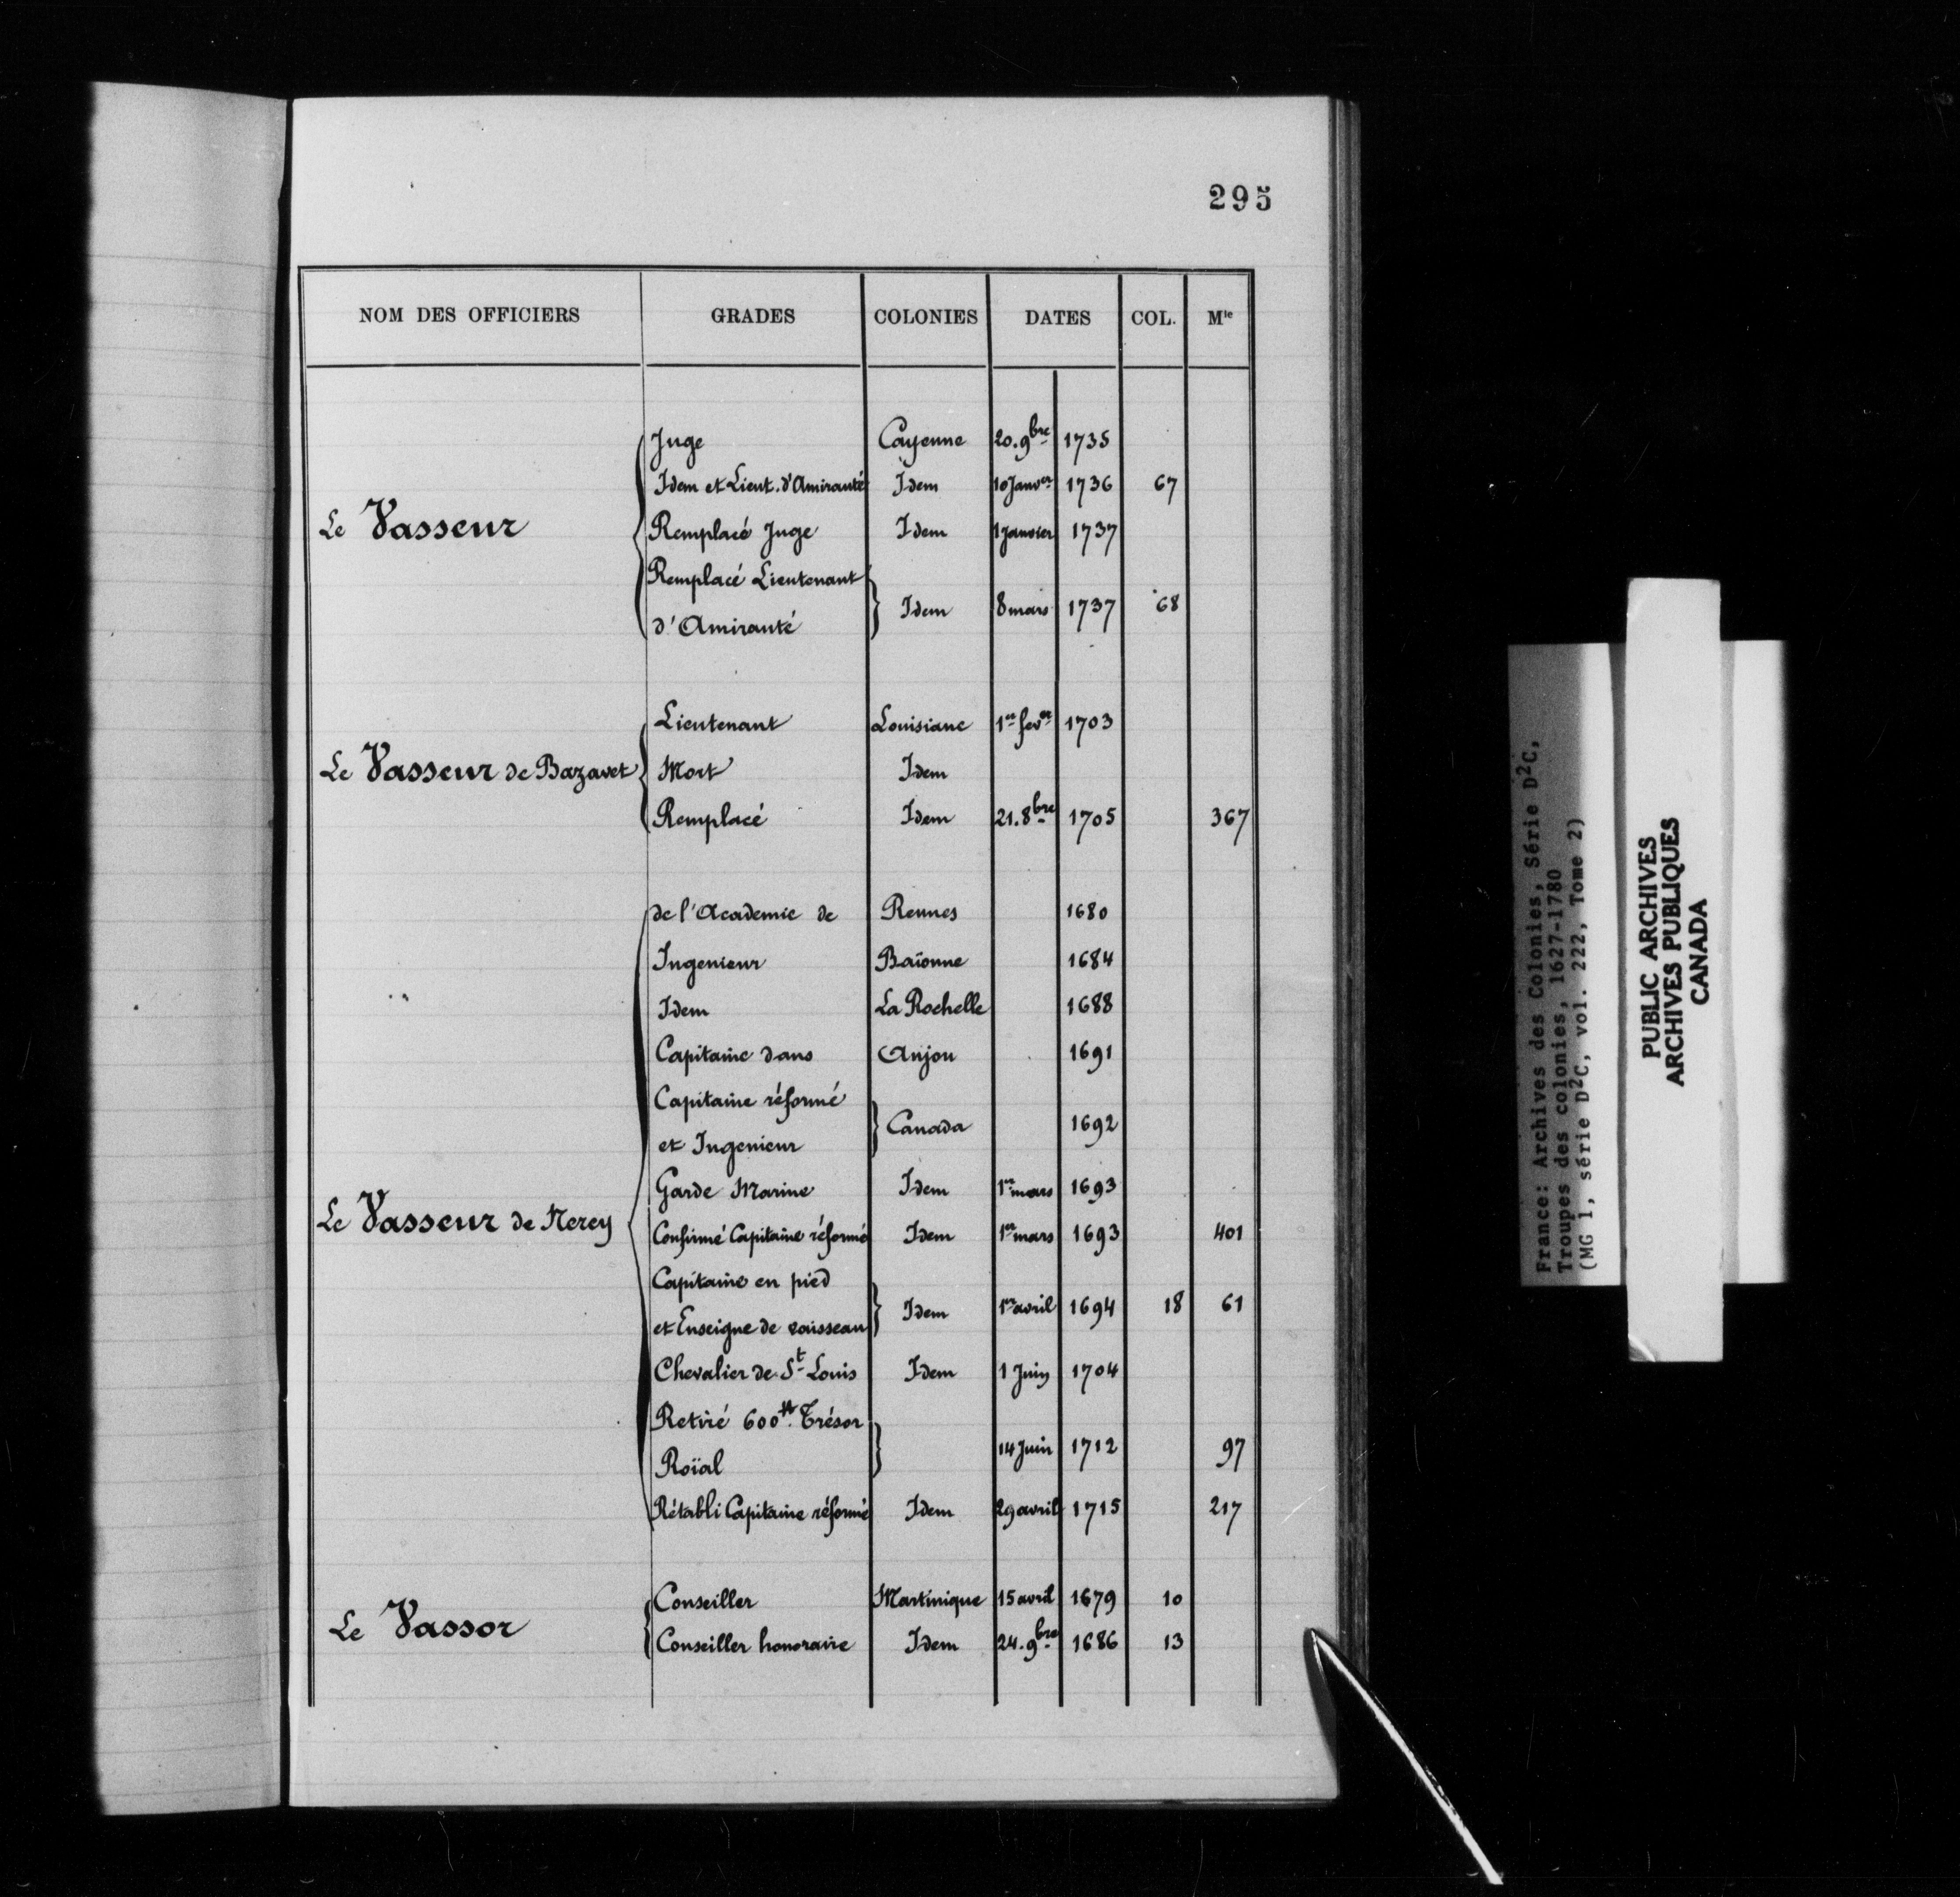 295
NOM DES OFFICIERS GRADES COLONIES DATES COL. Mle
Juge Cayenne 20.9bre 1735
Idem et Lieut. d'Amirauté Idem 10 Janver 1736 67
Le Vasseur Remplacé Juge Idem 1 Janvier 1737
Remplacé Lieutenant
d'Amirauté Idem 8 mars 1737 68
Lieutenant Louisiane 1er fever 1703
Le Vasseur de Bazavet Mort Idem
Remplacé Idem 21.8bre 1705 367
de l'Academie de Rennes 1680
Ingenieur Baïonne 1684
Idem La Rochelle 1688
Capitaine dans Anjou 1691
Capitaine réformé
et Ingenieur Canada 1692
Garde Marine Idem 1er mars 1693
Le Vasseur de Nerey Confirmé Capitaine réformé Idem 1er mars 1693 401
Capitaine en pied
et Enseigne de vaisseau Idem 1er avril 1694 18 61
Chevalier de St Louis Idem 1 Juin 1704
Retiré 600tt. Trésor
Roïal 14 Juin 1712 97
Rétabli Capitaine réformé Idem 29 avril 1715 217
Conseiller Martinique 15 avril 1679 10
Le Vassor Conseiller honoraire Idem 24.9bre 1686 13
France: Archives des Colonies, Série D2C,
Troupes des colonies, 1627-1780
(MG 1, série D2C, vol. 222, Tome 2)
PUBLIC ARCHIVES
ARCHIVES PUBLIQUES
CANADA